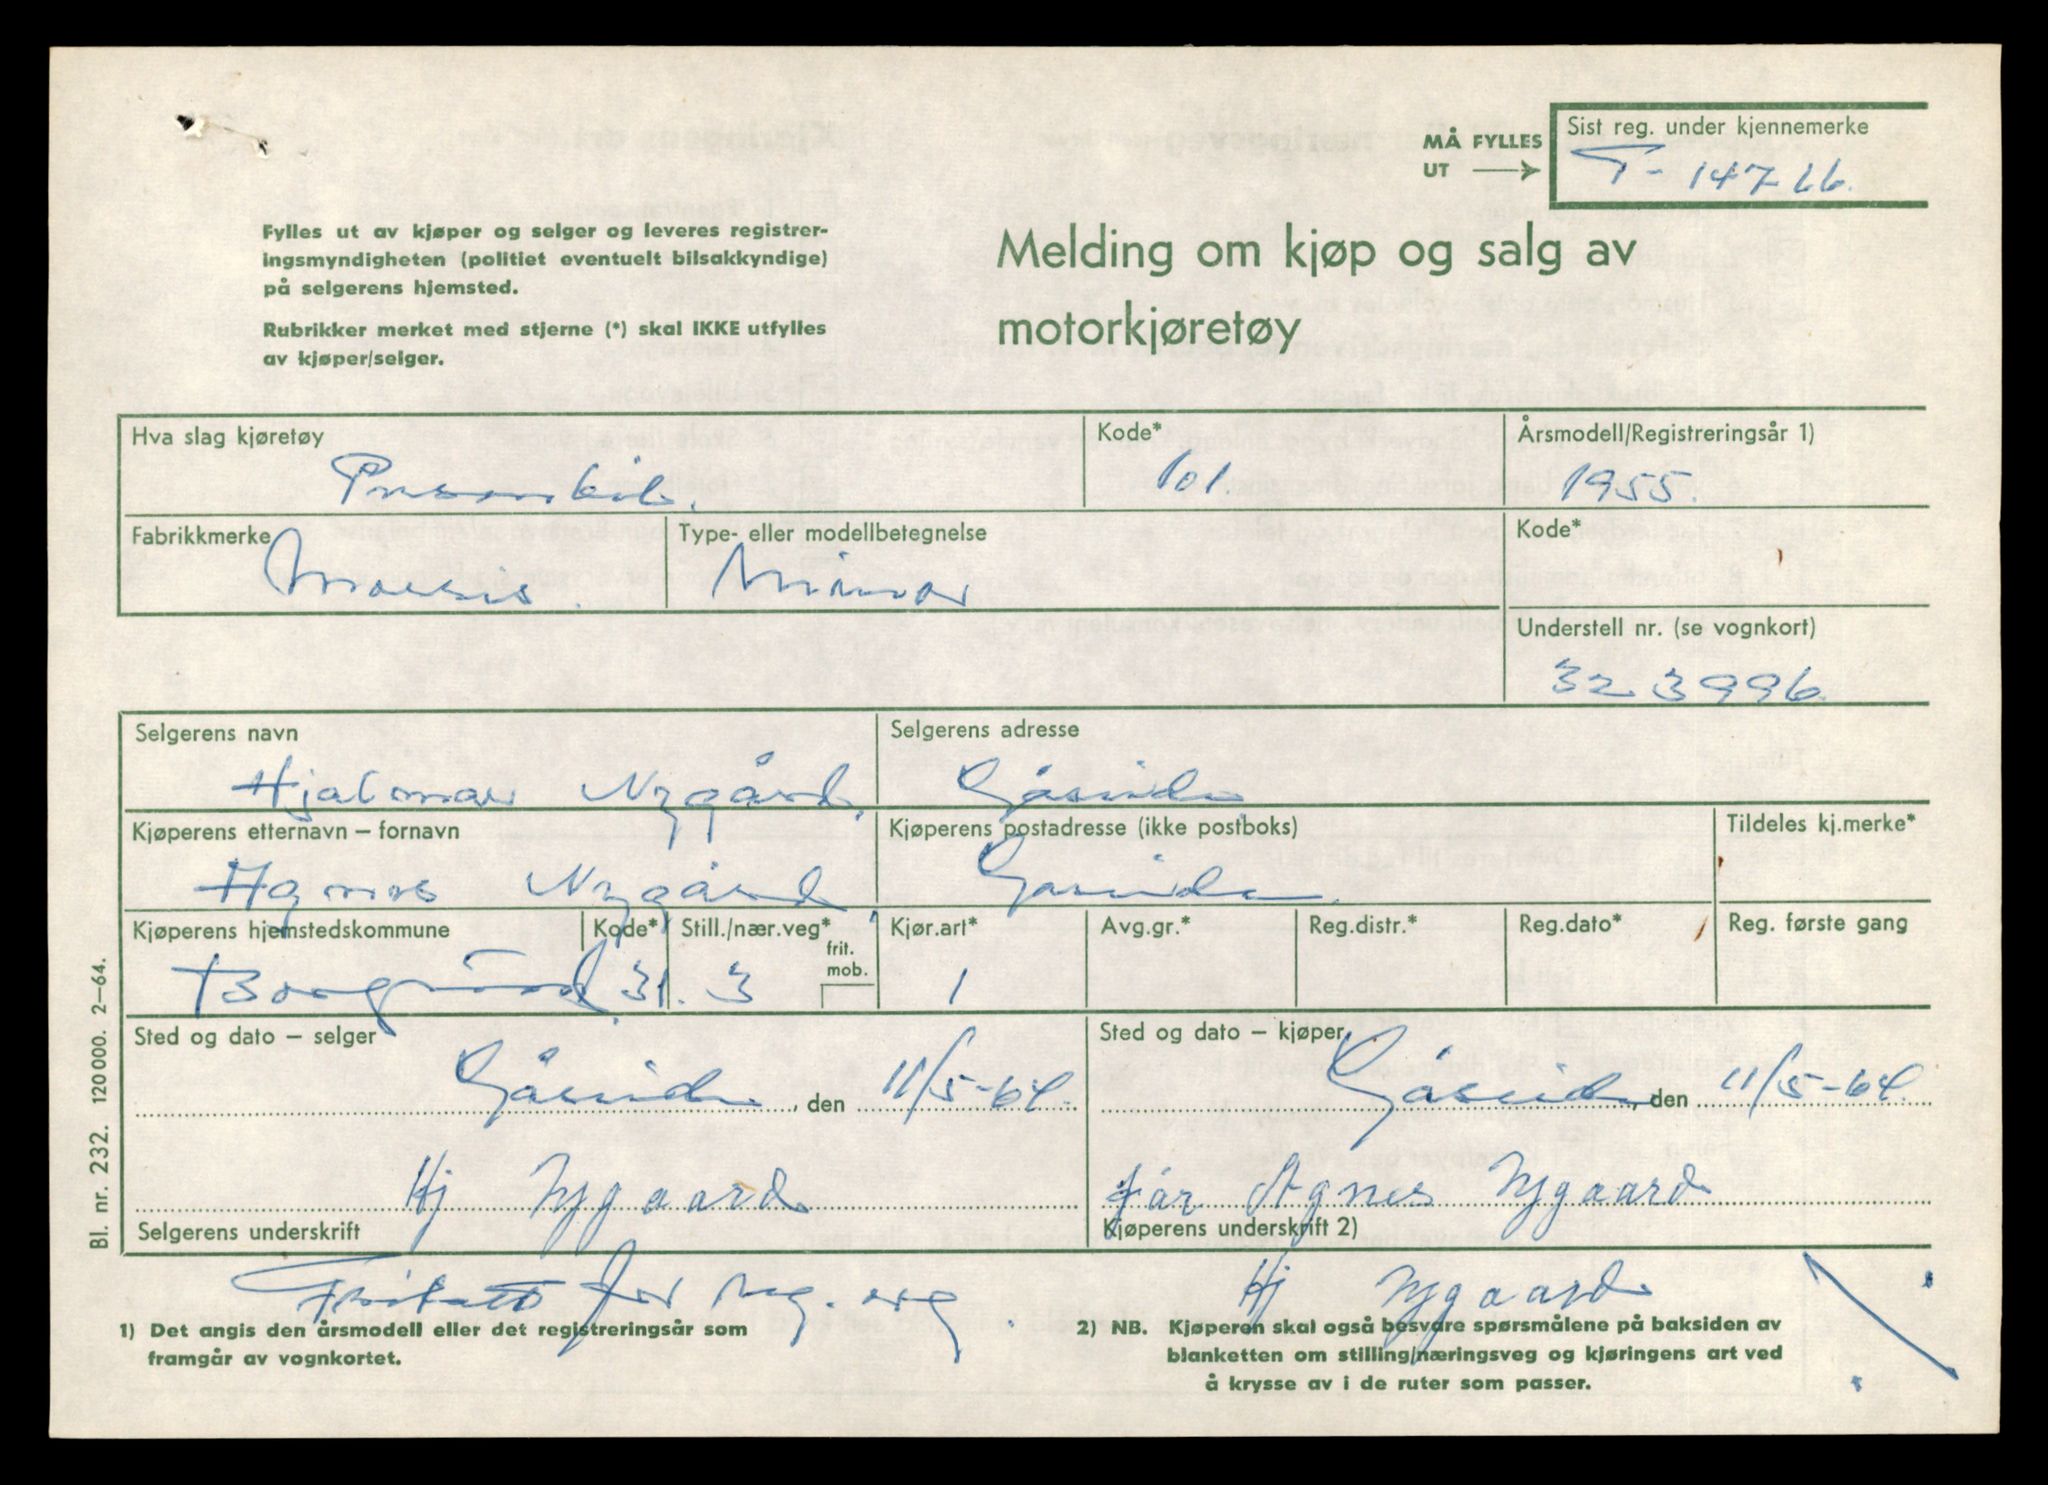 MÅ FYLLES UT
Sist reg. under kjennemerke
T- 14766.
Fylles ut av kjøper og selger og leveres registrer-
ingsmyndigheten (politiet eventuelt bilsakkyndige)
på selgerens hjemsted.
Rubrikker merket med stjerne (*) skal IKKE utfylles
av kjøper/selger.
Melding om kjøp og salg av
motorkjøretøy
Hva slag kjøretøy
Personbil.
Kode*
101.
Årsmodell/Registreringsår 1)
1955.
Fabrikkmerke
Morris.
Type- eller modellbetegnelse
Minor
Kode*
Understell nr. (se vognkort)
323996
Selgerens navn
Hjalmar Nygård,
Selgerens adresse
Gåseide
Kjøperens etternavn – fornavn
Agnes Nygård,
Kjøperens postadresse (ikke postboks)
Gåseide.
Tildeles kj.merke*
Kjøperens hjemstedskommune
Borgund,
Kode*
31.
Still./nær.veg*
3
frit.
mob.
Kjør.art*
1
Avg.gr.*
Reg.distr.*
Reg.dato*
Reg. første gang
Sted og dato – selger
Gåseide, den 11/5-64.
Sted og dato – kjøper
Gåseide, den 11/5-64.
Hj Nygaard
Selgerens underskrift
før Agnes Nygaard
Kjøperens underskrift 2)
Hj Nygaard
Fritatt for reg. avg.
1) Det angis den årsmodell eller det registreringsår som
framgår av vognkortet.
2) NB. Kjøperen skal også besvare spørsmålene på baksiden av
blanketten om stilling/næringsveg og kjøringens art ved
å krysse av i de ruter som passer.
Bl. nr. 232. 120 000. 2–64.